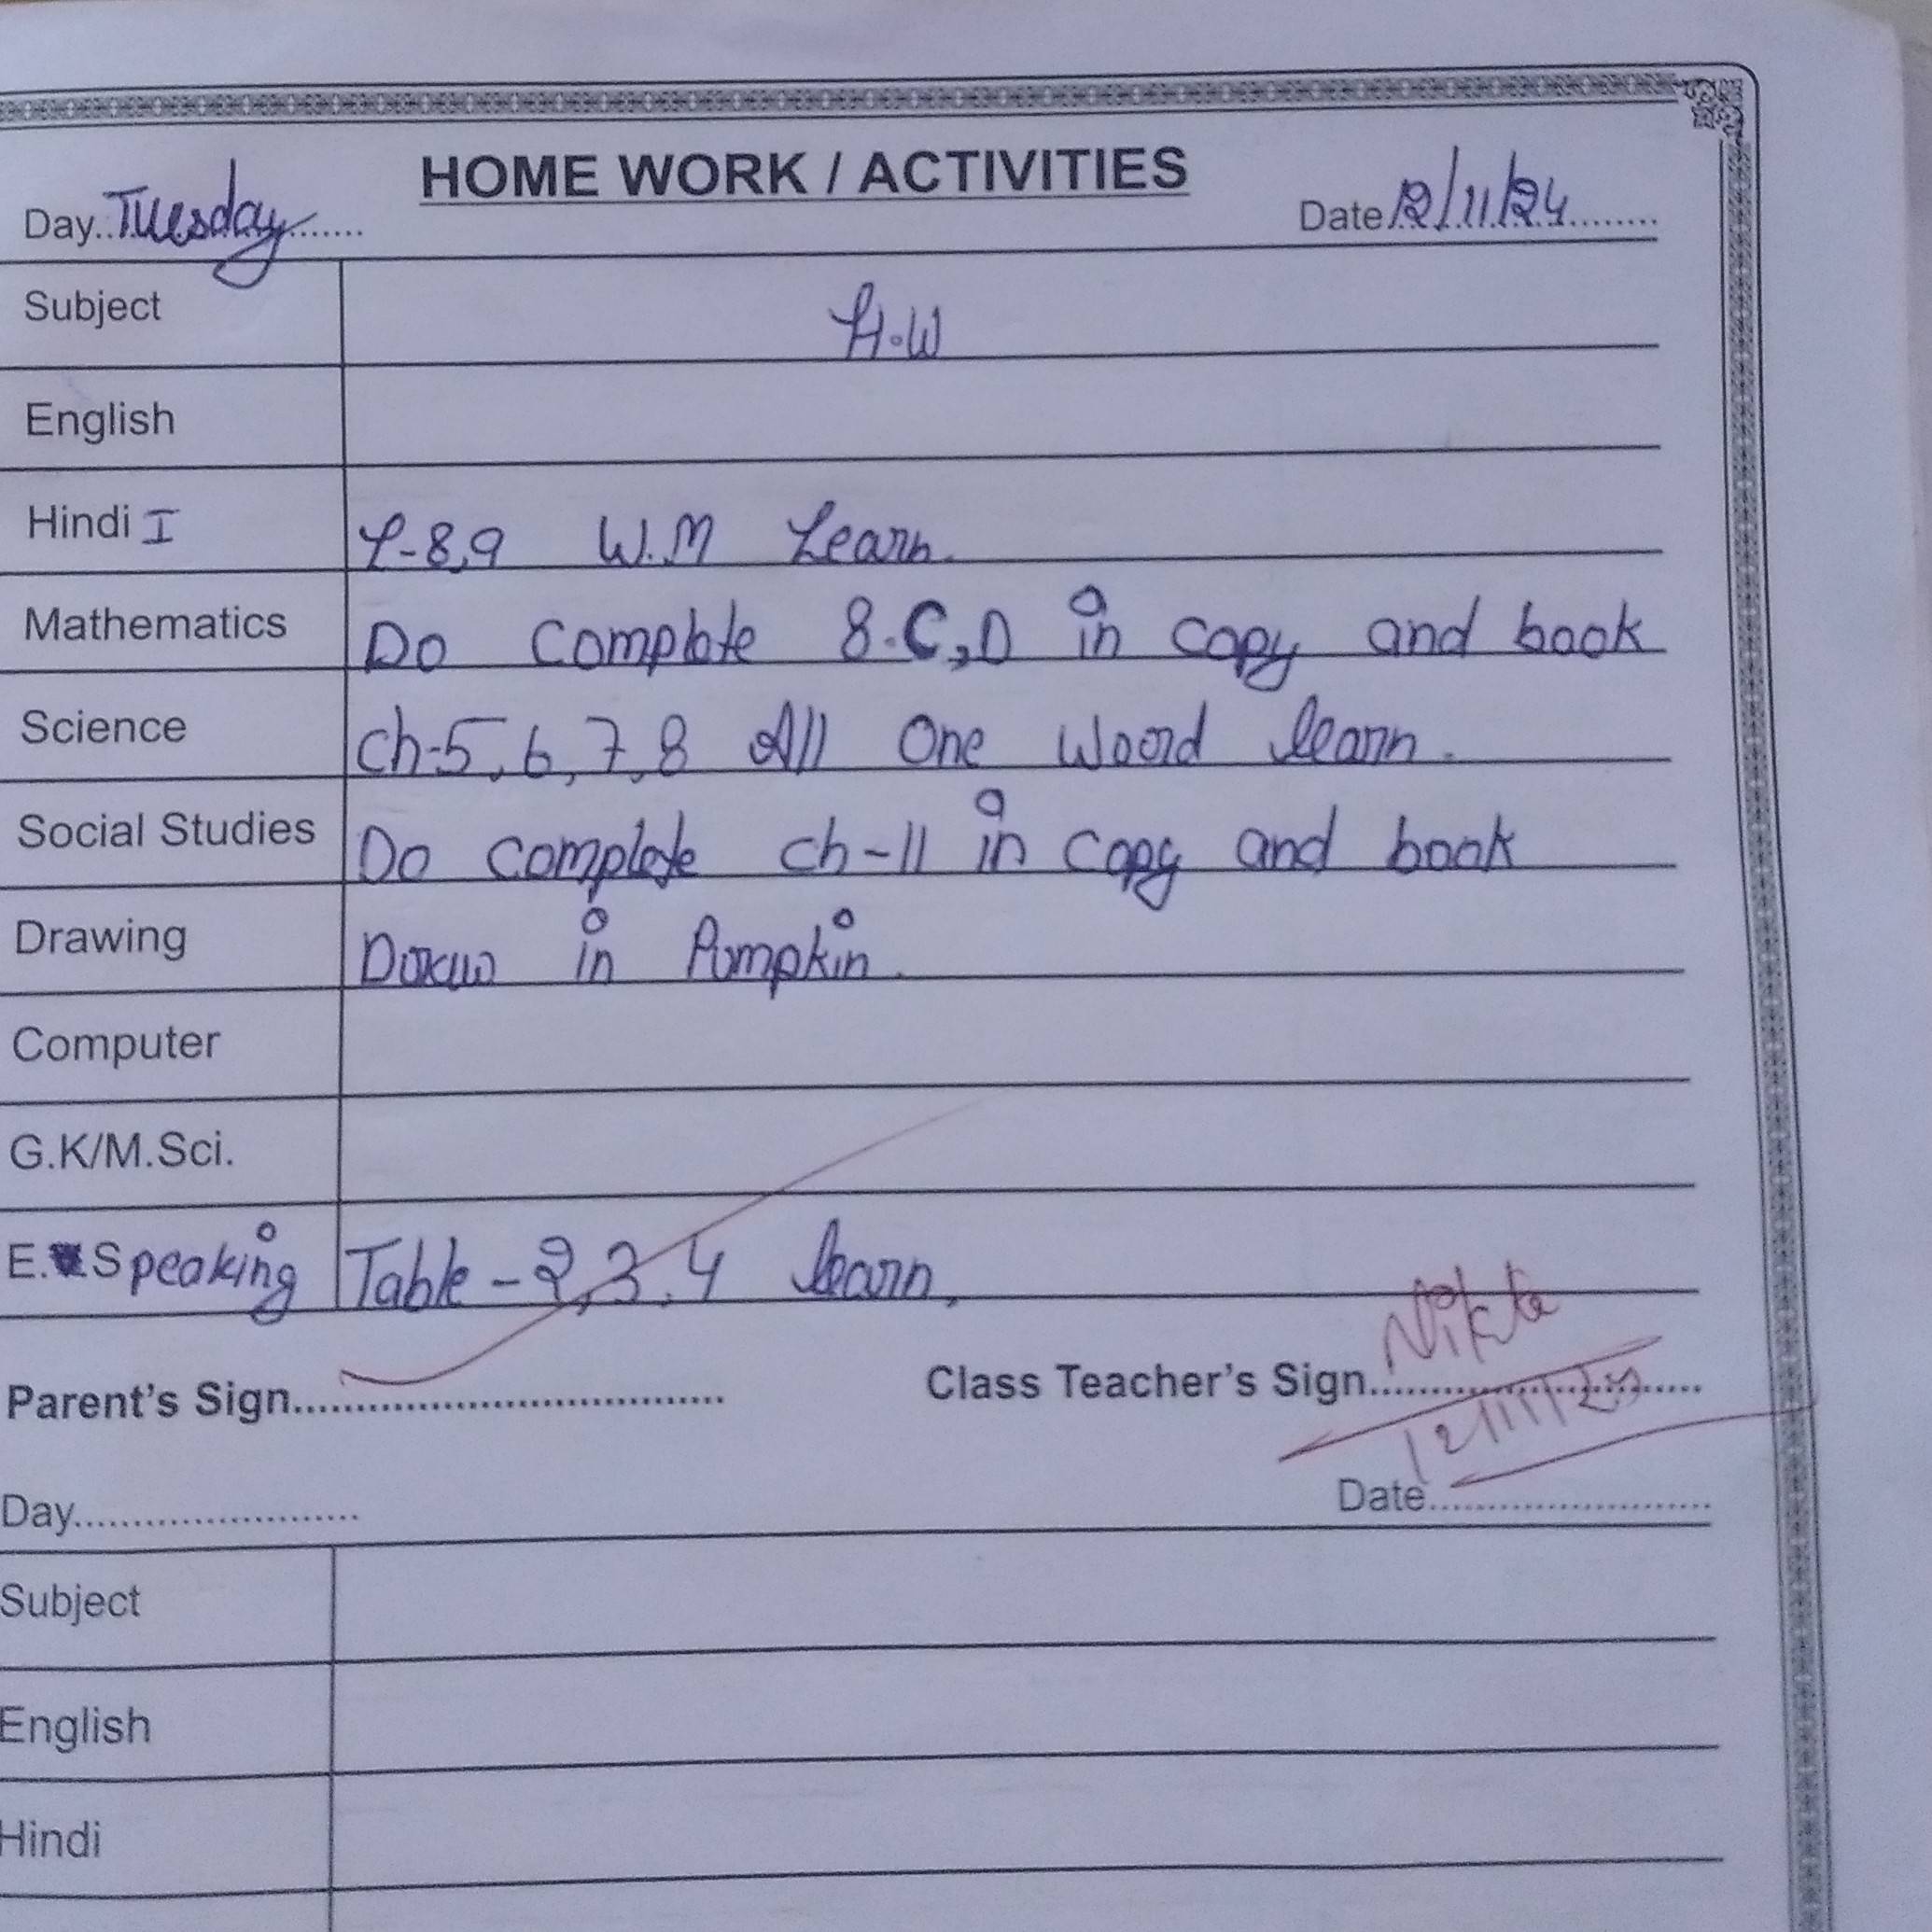 HOME WORK / ACTIVITIES
Day..Tuesday....... Date 12/11/24........
Subject H.W
English
Hindi I L-8,9 W.M Learn.
Mathematics Do Complete 8.C,D in copy and book
Science Ch-5,6,7,8 All One Word learn.
Social Studies Do complete ch-11 in copy and book
Drawing in Pumpkin.
Computer
G.K/M.Sci.
E. Speaking Table - 2,3,4 learn.
Parent's Sign.................................... Class Teacher's Sign........................
12/11/
Day........................ Date........................
Subject
English
Hindi